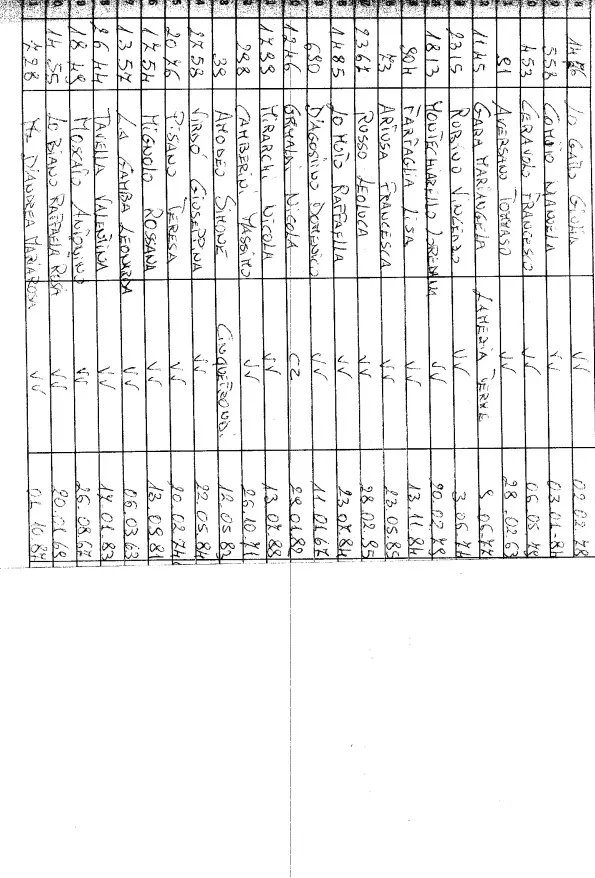 1476 LO GATTO GIULIA VV 02.02.78
558 COMITO MANUELA VV 03.01.84
453 CERAVOLO FRANCESCO VV 06.05.79
91 AVERSANO TOMMASO VV 28.02.63
1145 GARA MARIANGELA LAMEZIA TERME 8.06.77
2315 RUBINO VINCENZO VV 3.06.74
1813 MONTECHIARELLO LOREDANA VV 20.02.79
904 FARFAGLIA LISA VV 13.11.84
73 ARIUSA FRANCESCA VV 23.05.85
2367 RUSSO LEOLUCA VV 28.02.85
1485 LO MUTO RAFFAELLA VV 23.07.84
680 D'AGOSTINO DOMENICO VV 11.01.67
1246 GRIMALDI NICOLA CZ 29.01.82
1799 MIRARCHI NICOLA VV 13.07.88
288 CAMBERINI MASSIMO VV 26.10.71
39 AMODEO SIMONE CINQUEFRONDI 12.05.83
2753 VIRDÓ GIUSEPPINA VV 22.05.84
2076 PISANO TERESA VV 20.02.74
1754 MIGNOLO ROSSANA VV 13.08.81
1357 LA GAMBA LEONARDA VV 06.03.63
2644 TAVELLA VALENTINA VV 17.01.83
1849 ANTONINO VV 26.08.67
1455 LO BIANO RAFFAELA RITA VV 20.01.68
728 D'ANDREA MARIAROSA VV 01.10.84